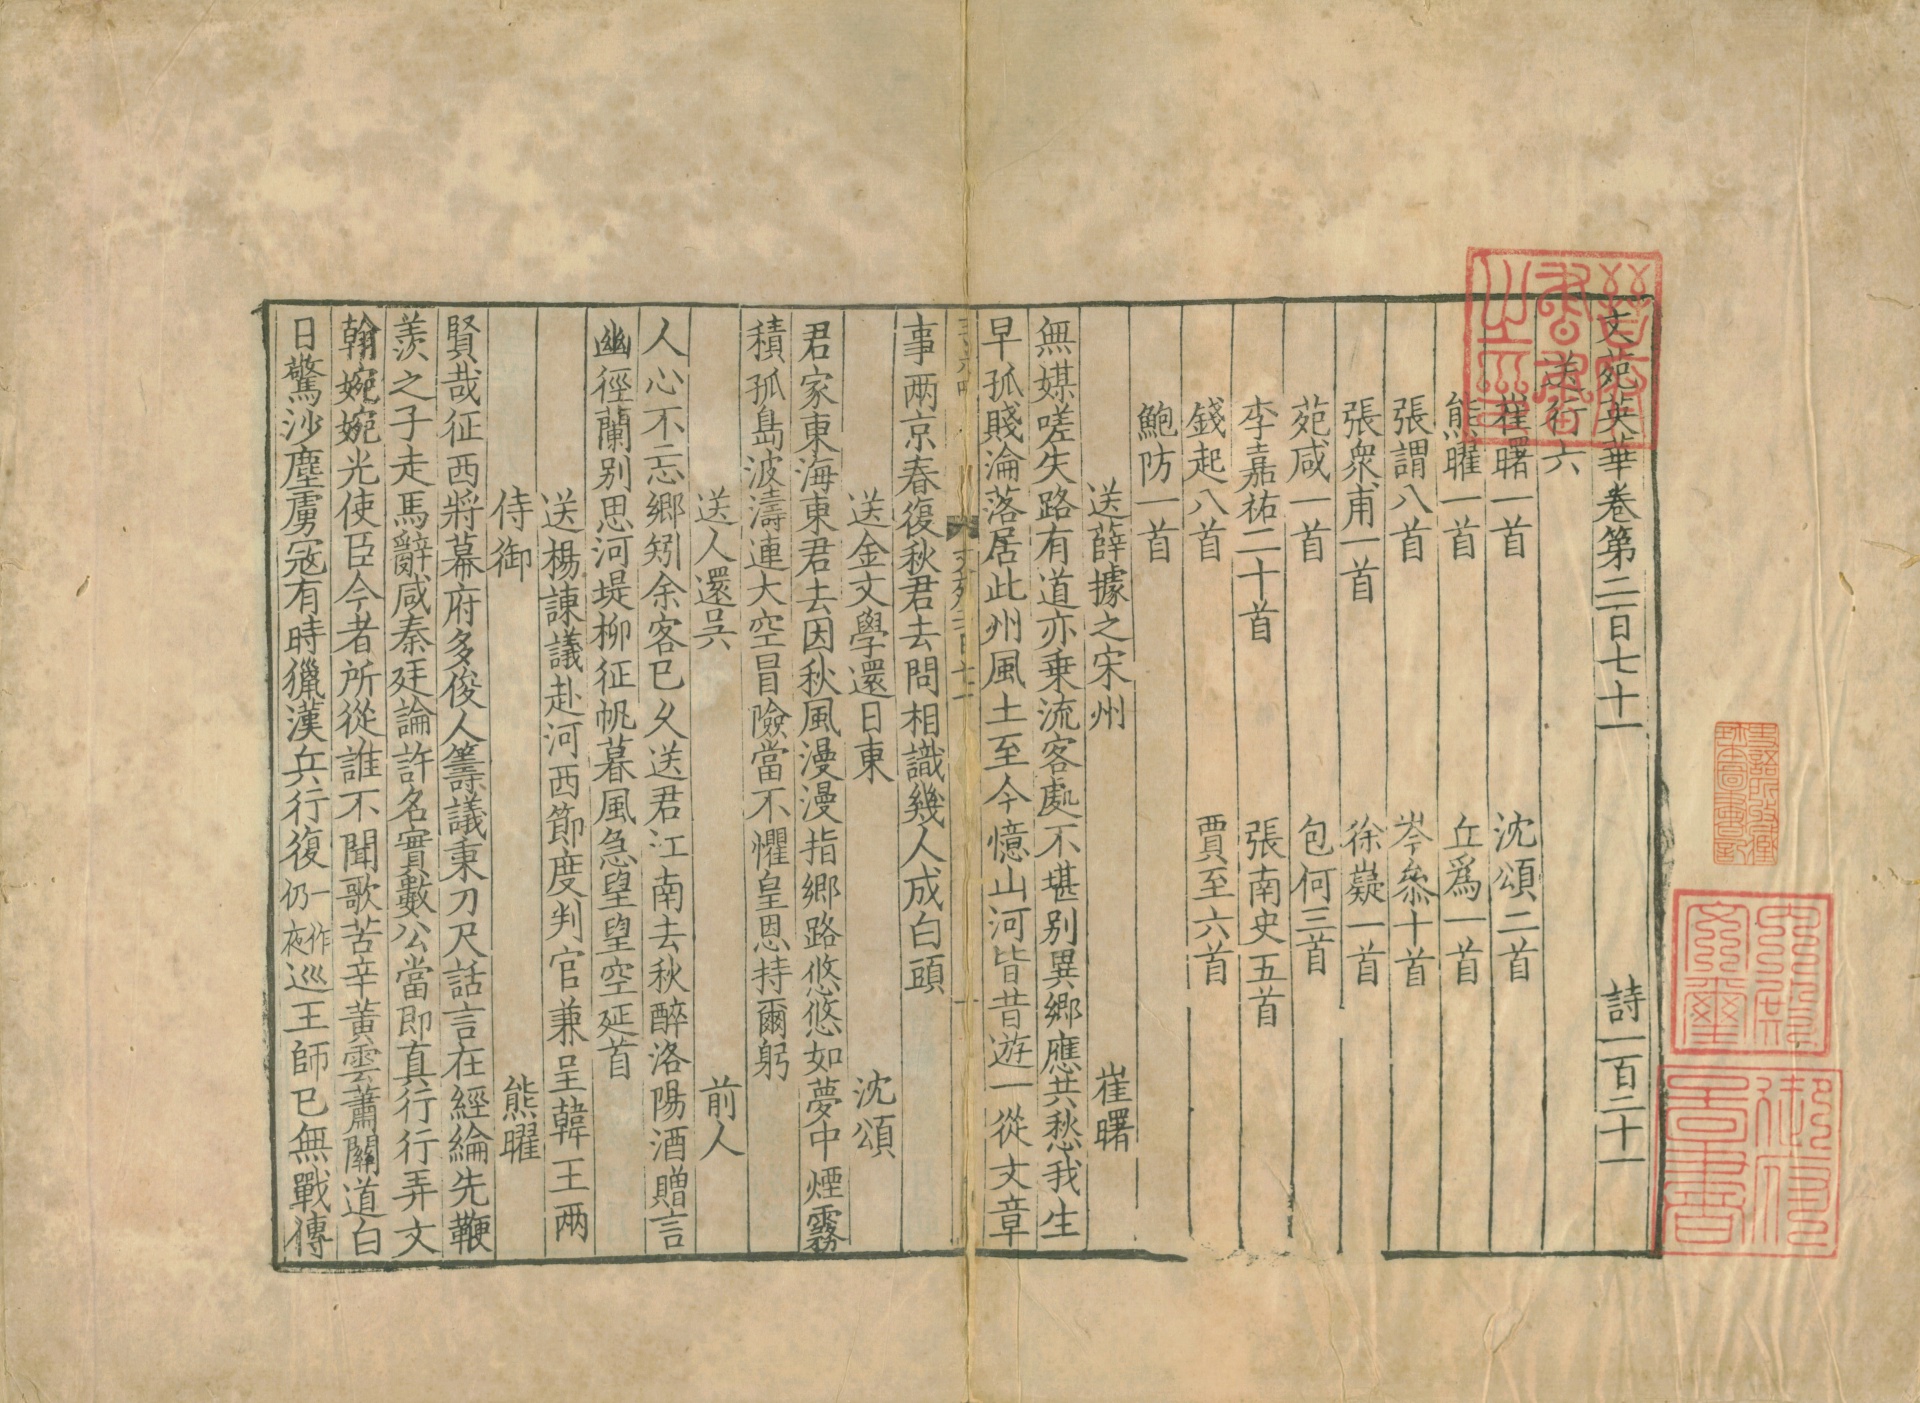 文苑英華卷第二百七十一　詩一百二十一
送行六
崔曙一首　沈頌二首
熊曜一首　丘爲一首
張謂八首　岑參十首
張衆甫一首　徐嶷一首
苑咸一首　包何三首
李嘉祐二十首　張南史五首
錢起八首　賈至六首
鮑防一首
送薛據之宋州　崔曙
無媒嗟失路有道亦乗流客處不堪别異鄉應共愁我生
早孤賤淪落居此州風土至今憶山河皆昔遊一從文章
事兩京春復秋君去問相識幾人成白頭
送金文學還日東　沈頌
君家東海東君去因秋風漫漫指鄉路悠悠如夢中煙霧
積孤島波濤連大空冒險當不懼皇恩持爾躬
送人還吳　前人
人心不忘鄉矧余客已久送君江南去秋醉洛陽酒贈言
幽徑蘭别思河堤柳征帆暮風急望望空延首
送楊諫議赴河西節度判官兼呈韓王兩
侍御　熊曜
賢哉征西將幕府多俊人籌議秉刀尺話言在經綸先鞭
羨之子走馬辭咸秦廷論許名實數公當即真行行弄文
翰婉婉光使臣今者所從誰不聞歌苦辛黃雲蕭關道白
日驚沙塵虜寇有時獵漢兵行復一作仍夜巡王師已無戰傳